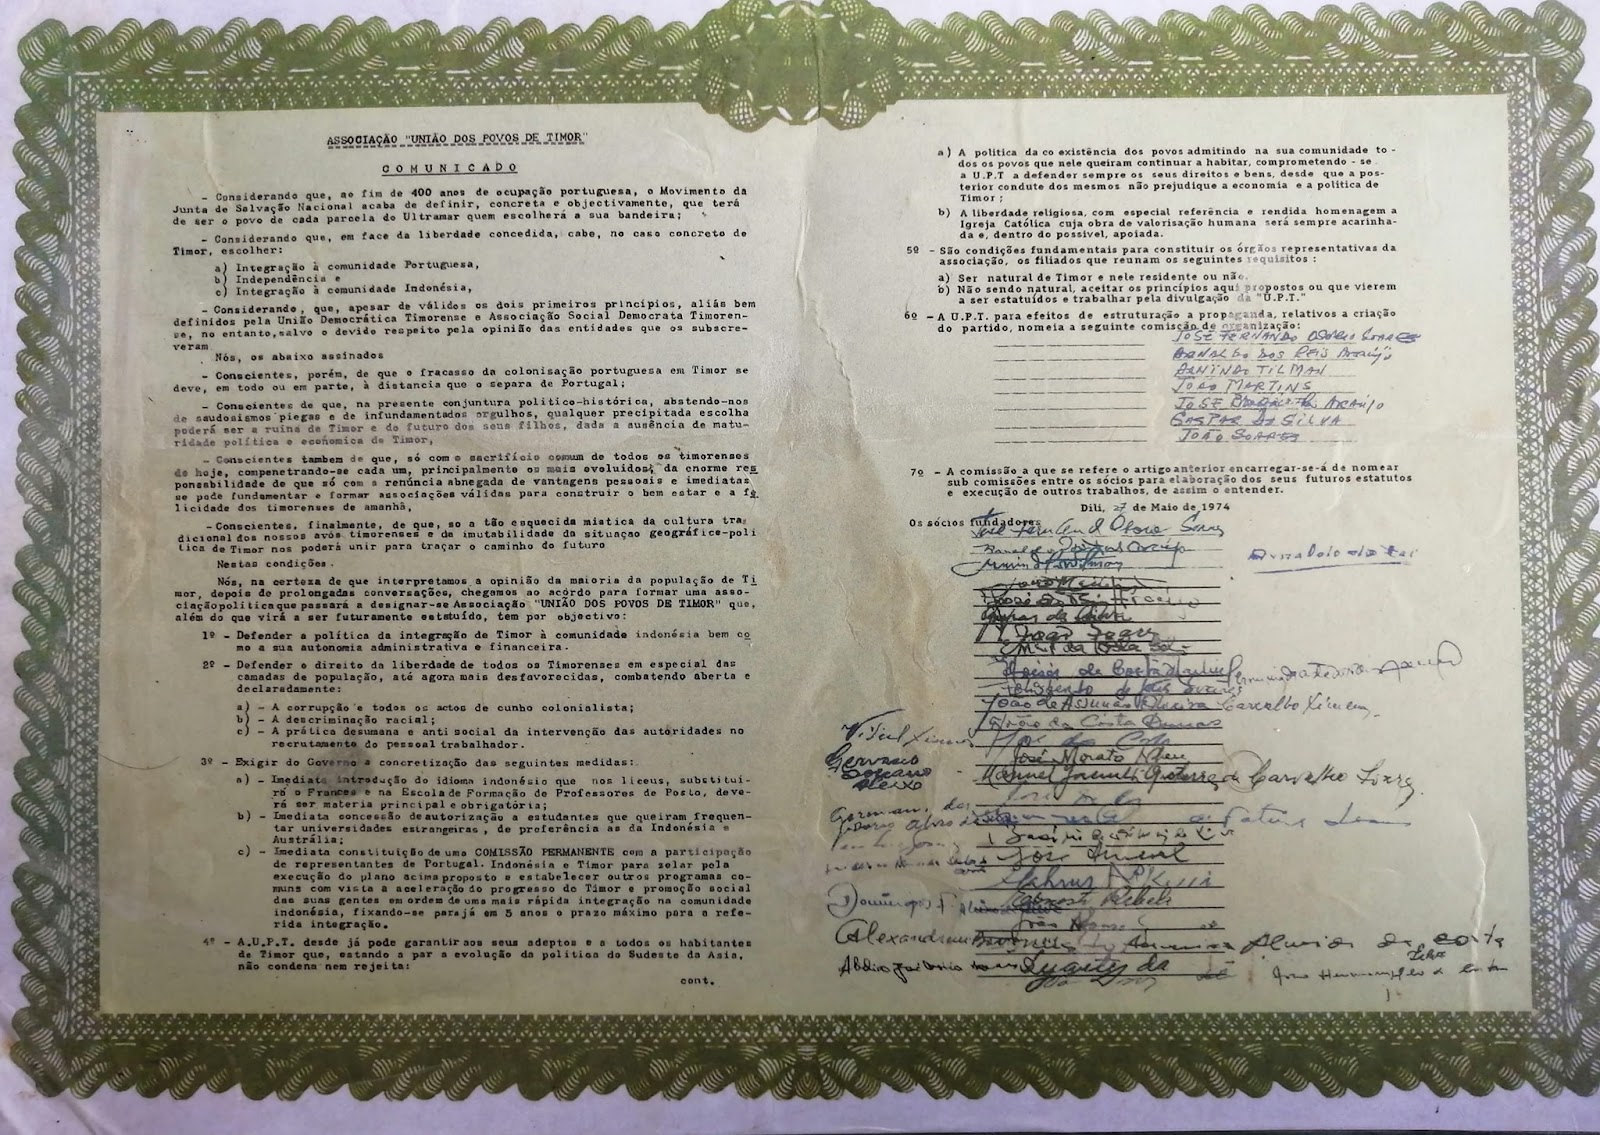 ASSOCIAÇÃO "UNIÃO DOS POVOS DE TIMOR"
COMUNICADO
- Considerando que, ao fim de 400 anos de ocupação portuguesa, o Movimento da
Junta de Salvação Nacional acaba de definir, concreta e objectivamente, que terá
de ser o povo de cada parcela do Ultramar quem escolherá a sua bandeira;
- Considerando que, em face da liberdade concedida, cabe, no caso concreto de
Timor, escolher:
a) Integração à comunidade Portuguesa,
b) Independência e
c) Integração à comunidade Indonésia,
- Considerando, que, apesar de válidos os dois primeiros princípios, aliás bem
definidos pela União Democrática Timorense e Associação Social Democrata Timoren-
se, no entanto, salvo o devido respeito pela opinião das entidades que os subscre-
veram
Nós, os abaixo assinados
- Conscientes, porém, de que o fracasso da colonisação portuguesa em Timor se
deve, em todo ou em parte, à distancia que o separa de Portugal;
- Conscientes de que, na presente conjuntura politico-histórica, abstendo-nos
de saudosismos piegas e de infundamentados orgulhos, qualquer precipitada escolha
poderá ser a ruina de Timor e do futuro dos seus filhos, dada a ausência de matu-
ridade política e económica de Timor,
- Conscientes tambem de que, só com o sacrifício comum de todos os timorenses
de hoje, compenetrando-se cada um, principalmente os mais evoluidos, da enorme res
ponsabilidade de que só com a renúncia abnegada de vantagens pessoais e imediatas
se pode fundamentar e formar associações válidas para construir o bem estar e a fe
licidade dos timorenses de amanhã,
- Conscientes, finalmente, de que, so a tão esquecida mistica da cultura tra
dicional dos nossos avós timorenses e da imutabilidade da situaçao geográfico-poli
tica de Timor nos poderá unir para traçar o caminho do futuro
Nestas condições.
Nós, na certeza de que interpretamos a opinião da maioria da população de Ti
mor, depois de prolongadas conversações, chegamos ao acôrdo para formar uma asso-
ciação politica que passará a designar-se Associação "UNIÃO DOS POVOS DE TIMOR" que,
além do que virá a ser futuramente estatuído, tem por objectivo:
1º - Defender a política da integração de Timor à comunidade indonésia bem co
mo a sua autonomia administrativa e financeira.
2º - Defender o direito da liberdade de todos os Timorenses em especial das
camadas de população, até agora mais desfavorecidas, combatendo aberta e
declaradamente:
a) - A corrupção e todos os actos de cunho colonialista;
b) - A descriminação racial;
c) - A prática desumana e anti social da intervenção das autoridades no
recrutamento do pessoal trabalhador.
3º - Exigir do Governo a concretização das seguintes medidas:
a) - Imediata introdução do idioma indonésio que nos liceus, substitui-
rá o Frances e na Escola de Formação de Professores de Posto, deve-
rá ser materia principal e obrigatória;
b) - Imediata concessão de autorização a estudantes que queiram frequen-
tar universidades estrangeiras, de preferência as da Indonésia e
Austrália;
c) - Imediata constituição de uma COMISSÃO PERMANENTE com a participação
de representantes de Portugal. Indonésia e Timor para zelar pela
execução do plano acima proposto e estabelecer outros programas co-
muns com vista a aceleração do progresso de Timor e promoção social
das suas gentes em ordem de uma mais rápida integração na comunidade
indonésia, fixando-se para já em 5 anos o prazo máximo para a refe-
rida integração.
4º - A.U.P.T. desde já pode garantir aos seus adeptos e a todos os habitantes
de Timor que, estando a par a evolução da política do Sudeste da Asia,
não condena nem rejeita:
cont.
a) A politica da co existência dos povos admitindo na sua comunidade to -
dos os povos que nele queiram continuar a habitar, comprometendo - se
a U.P.T a defender sempre os seus direitos e bens, desde que a pos-
terior condute dos mesmos não prejudique a economia e a política de
Timor ;
b) A liberdade religiosa, com especial referência e rendida homenagem a
Igreja Católica cuja obra de valorisação humana será sempre acarinha-
da e, dentro do possivel, apoiada.
5º - São condições fundamentais para constituir os órgãos representativas da
associação, os filiados que reunam os seguintes requisitos :
a) Ser natural de Timor e nele residente ou não.
b) Não sendo natural, aceitar os princípios aqui propostos ou que vierem
a ser estatuídos e trabalhar pela divulgação da "U.P.T."
6º - A U.P.T. para efeitos de estruturação a propaganda, relativos a criação
do partido, nomeia a seguinte comissão de organização:
JOSÉ FERNANDO OSÓRIO SOARES
ARNALDO DOS REIS ARAÚJO
ARMINDO TILMAN
JOÃO MARTINS
JOSÉ ARAÚJO
GASPAR DA SILVA
JOÃO SOARES
7º - A comissão a que se refere o artigo anterior encarregar-se-á de nomear
sub comissões entre os sócios para elaboração dos seus futuros estatutos
e execução de outros trabalhos, de assim o entender.
Dili, 27 de Maio de 1974
Os sócios fundadores
José Osorio Soares
João Soares
João de Carvalho Ximenes
da Costa
V. Ximenes
José Morato
Gervasio
Manuel da Carvalho
José Amaral
Domingos
Alexandrino Almeida da Costa
Duarte da